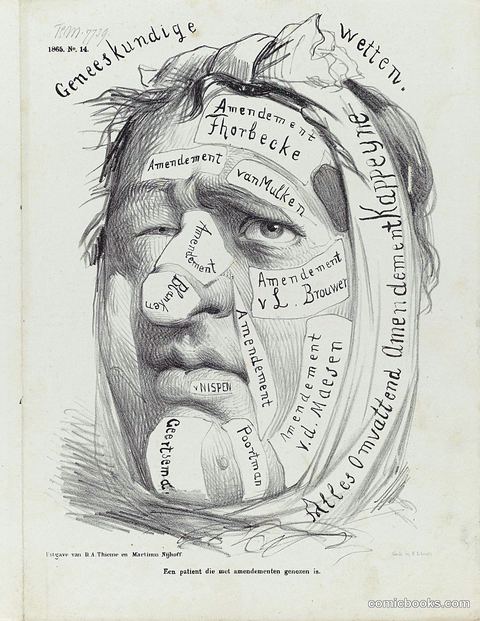 1865. No. 14.
Geneeskundige wetten.
Amendement
Thorbecke
Amendement
van Mulken
Amendement
Blanken
Amendement
v L. Brouwer
Amendement
v NISPEN
Amendement
v.d. Maesen
Geertsema.
Poortman
Alles Omvattend Amendement Kappeyne
Uitgave van D. A. Thieme en Martinus Nijhoff.
Een patient die met amendementen genezen is.
comicbooks.com